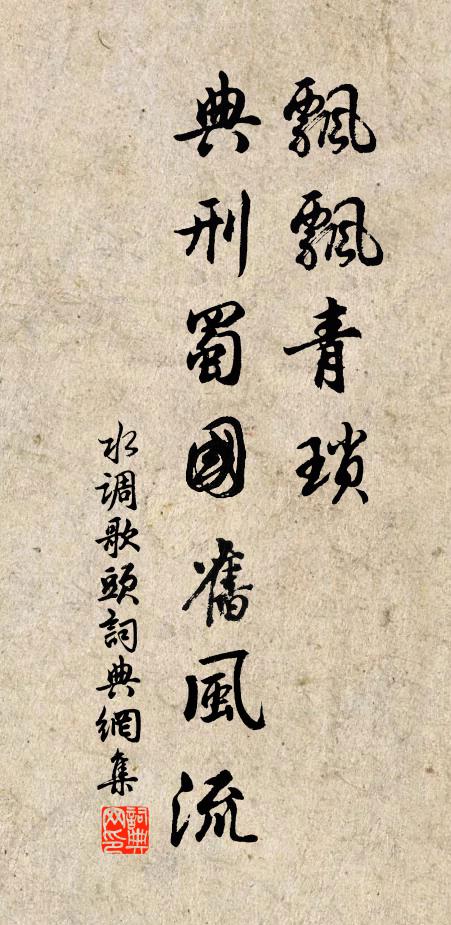 飄飄青瑣
典刑蜀國舊風流
水調歌頭詞典網集
詞典網印